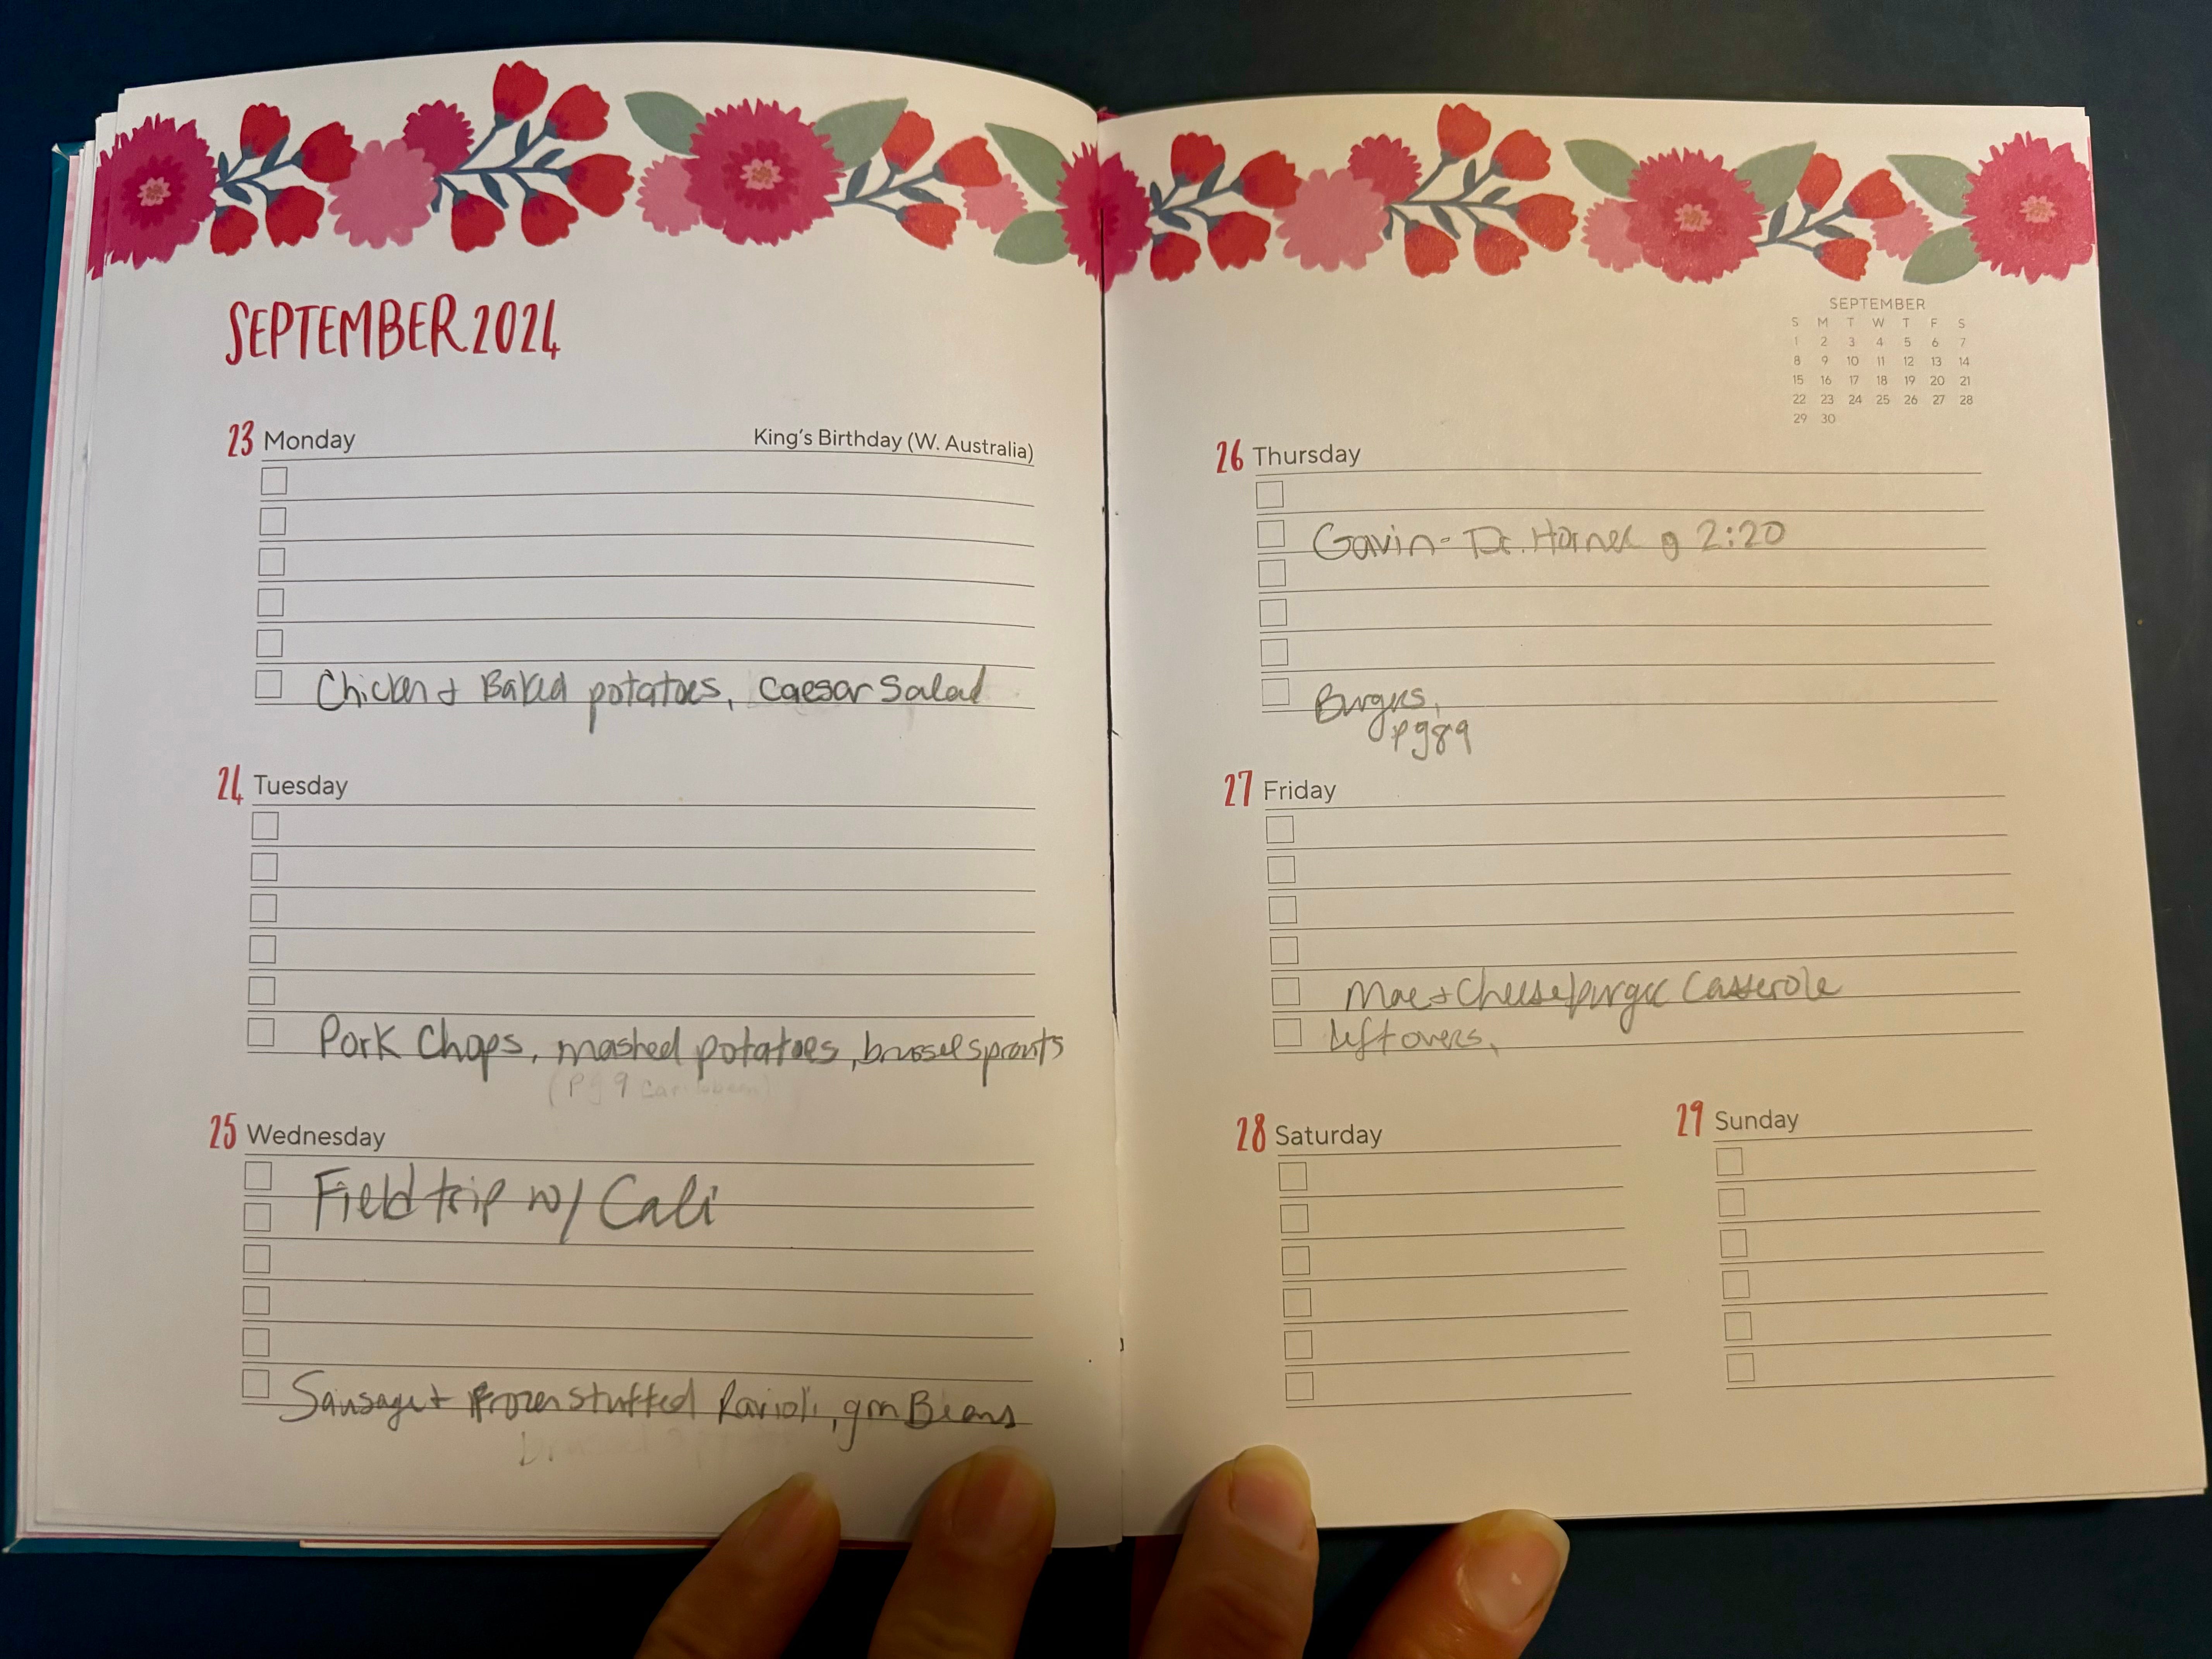 SEPTEMBER 2024
23 Monday King's Birthday (W. Australia)
Chicken + Baked potatoes, Caesar Salad
24 Tuesday
Pork Chops, mashed potatoes, brussel sprouts
(Pg 9 Caribbean)
25 Wednesday
Field trip w/ Cali
Sausage + Frozen stuffed Ravioli, grn Beans
SEPTEMBER
S M T W T F S
1 2 3 4 5 6 7
8 9 10 11 12 13 14
15 16 17 18 19 20 21
22 23 24 25 26 27 28
29 30
26 Thursday
Gavin - Dr. 2:20
Burgers,
pg 89
27 Friday
Mac + Cheeseburger Casserole
leftovers,
28 Saturday
29 Sunday